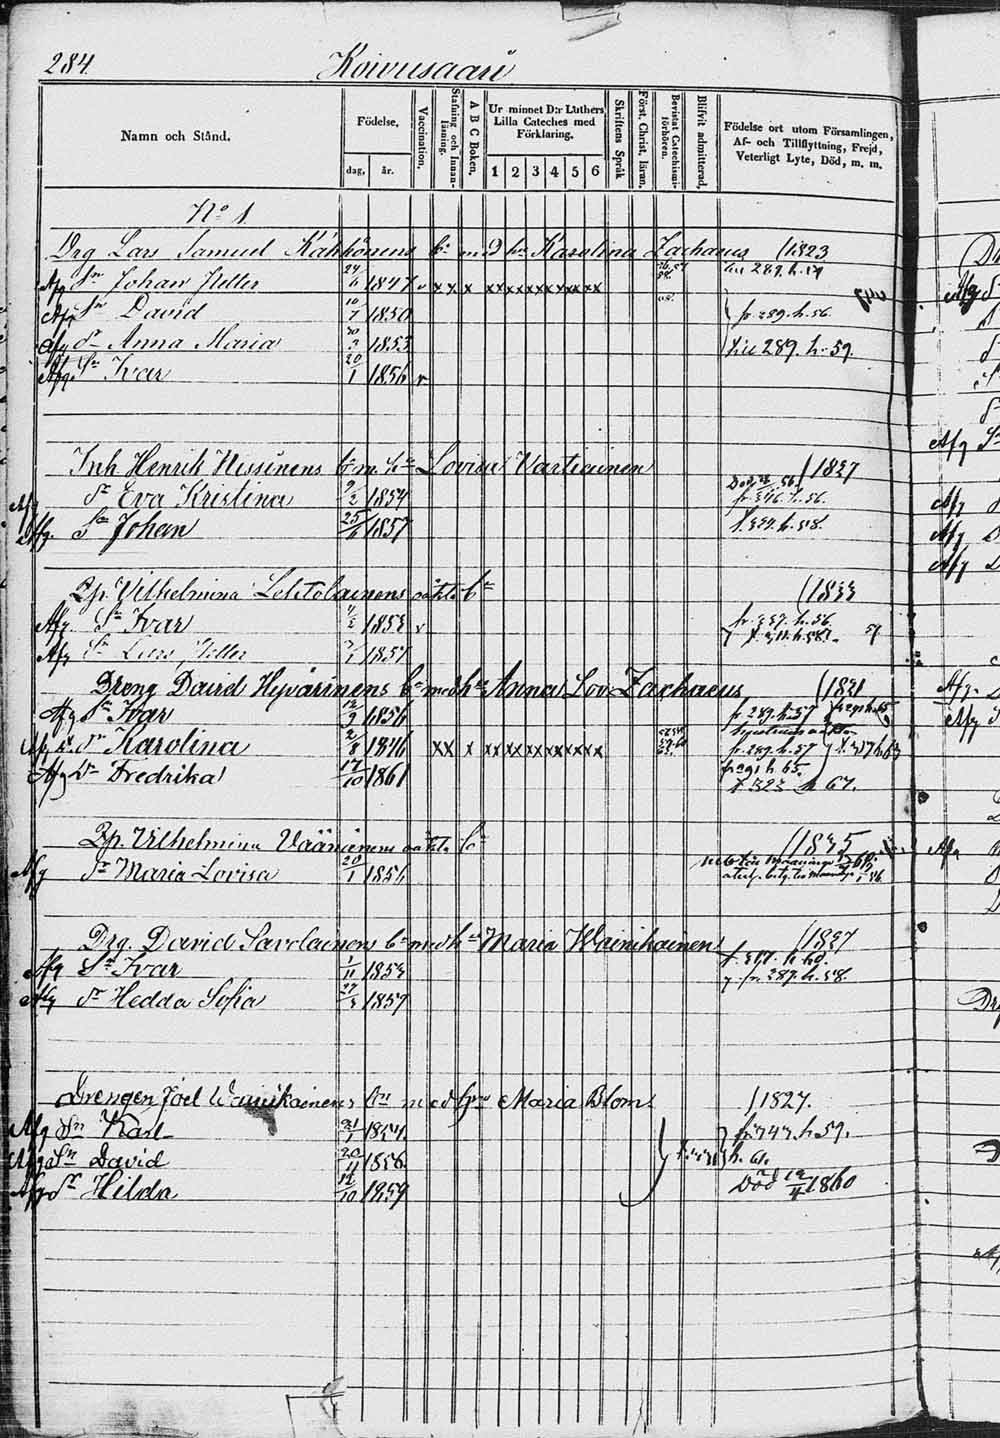 284.
Koivusaari
Namn och Stånd.
Födelse,
dag, år.
Vaccination.
Stafning och Innanläsning.
A B C Boken,
Ur minnet D:r Luthers Lilla Cateches med Förklaring.
1 2 3 4 5 6
Skriftens Språk
Först. Christ. läran.
Bevistat Catechismiförhören.
Blifvit admitterad,
Födelse ort utom Församlingen, Af- och Tillflyttning, Frejd, Veterligt Lyte, Död, m. m.
No 1.
Drg Lars Samuel Kähkönens bn med hu Karolina Zachaeus /1823
Afg Sn Johan Petter 24/6 1847 v x x x x x x x x x x x x till 289. h. 59
Afg Sn David 10/7 1850 fr. 289. h. 56.
Afg Dr Anna Maria 30/3 1853 till 289. h. 59.
Afg. Sn Ivar 20/1 1856 v
Inh Henrik Hissinens bn m. hu Lovisa Vartiainen /1827
Afg Dr Eva Kristina 9/2 1854 fr. 346. h. 56.
Afg. Sn Johan 25/6 1857 h. 58.
Lehtolainens oäkta bn /1833
Afg. Sn Ivar 1853 v h. 56.
Afg Sn Lars Petter 1857
Dreng David Hyvärinens bn med hu Anna Lov. Zachaeus /1821
Afg Sn Ivar 12/9 1856 fr 289. h. 57
Afg Dr Karolina 2/8 1846 x x x x x x x x x x x x fr. 289. h. 57
Afg Dr Fredrika 17/10 1861 fr 291 h 65.
t 323 h 67.
Vilhelmina Väänänens oäkta bn /1835
Afg Dr Maria Lovisa 20/1 1856
Drg. David Savolainens bn med hu Maria Wainikainen /1827
Afg Sn Ivar 1/11 1853 h. 60.
Afg Dr Hedda Sofia 27/3 1857 fr. 287. h. 58.
Drengen Joel Wainikainens bn med hu Maria Blom. /1827.
Afg Sn Karl 1854. fr 343. h. 59.
Afg Sn David 20/4 1856 h. 61.
Afg Dr Hilda 12/10 1859 Död 1860